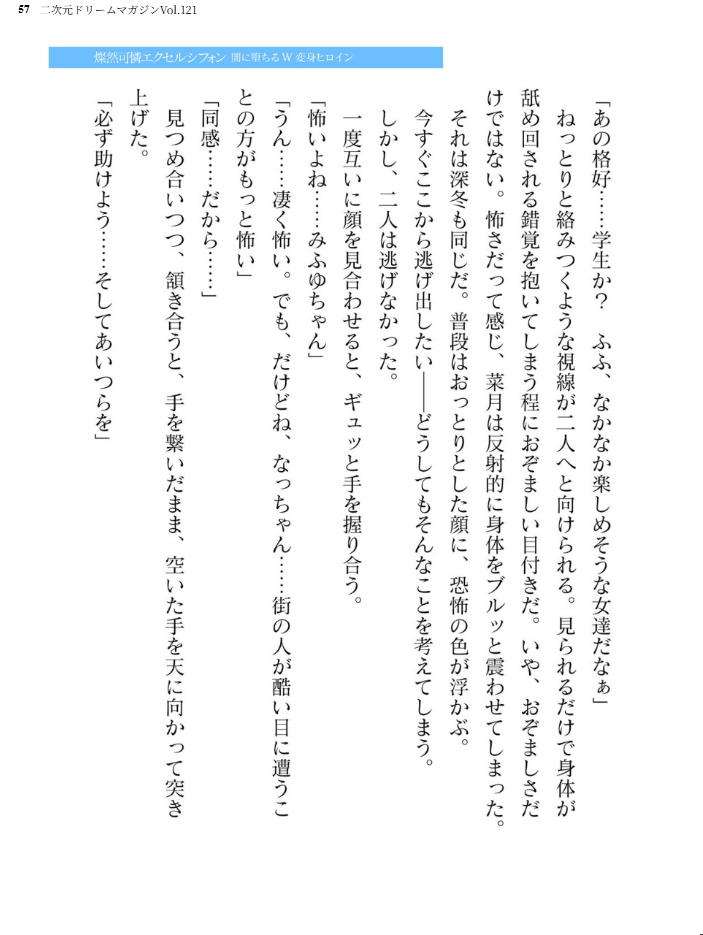 57 二次元ドリームマガジンVol.121
燦然可憐エクセルシフォン 闇に堕ちるW変身ヒロイン
「あの格好……学生か？　ふふ、なかなか楽しめそうな女達だなぁ」
　ねっとりと絡みつくような視線が二人へと向けられる。見られるだけで身体が
舐め回される錯覚を抱いてしまう程におぞましい目付きだ。いや、おぞましさだ
けではない。怖さだって感じ、菜月は反射的に身体をブルッと震わせてしまった。
　それは深冬も同じだ。普段はおっとりとした顔に、恐怖の色が浮かぶ。
　今すぐここから逃げ出したい――どうしてもそんなことを考えてしまう。
　しかし、二人は逃げなかった。
　一度互いに顔を見合わせると、ギュッと手を握り合う。
「怖いよね……みふゆちゃん」
「うん……凄く怖い。でも、だけどね、なっちゃん……街の人が酷い目に遭うこ
との方がもっと怖い」
「同感……だから……」
　見つめ合いつつ、頷き合うと、手を繋いだまま、空いた手を天に向かって突き
上げた。
「必ず助けよう……そしてあいつらを」